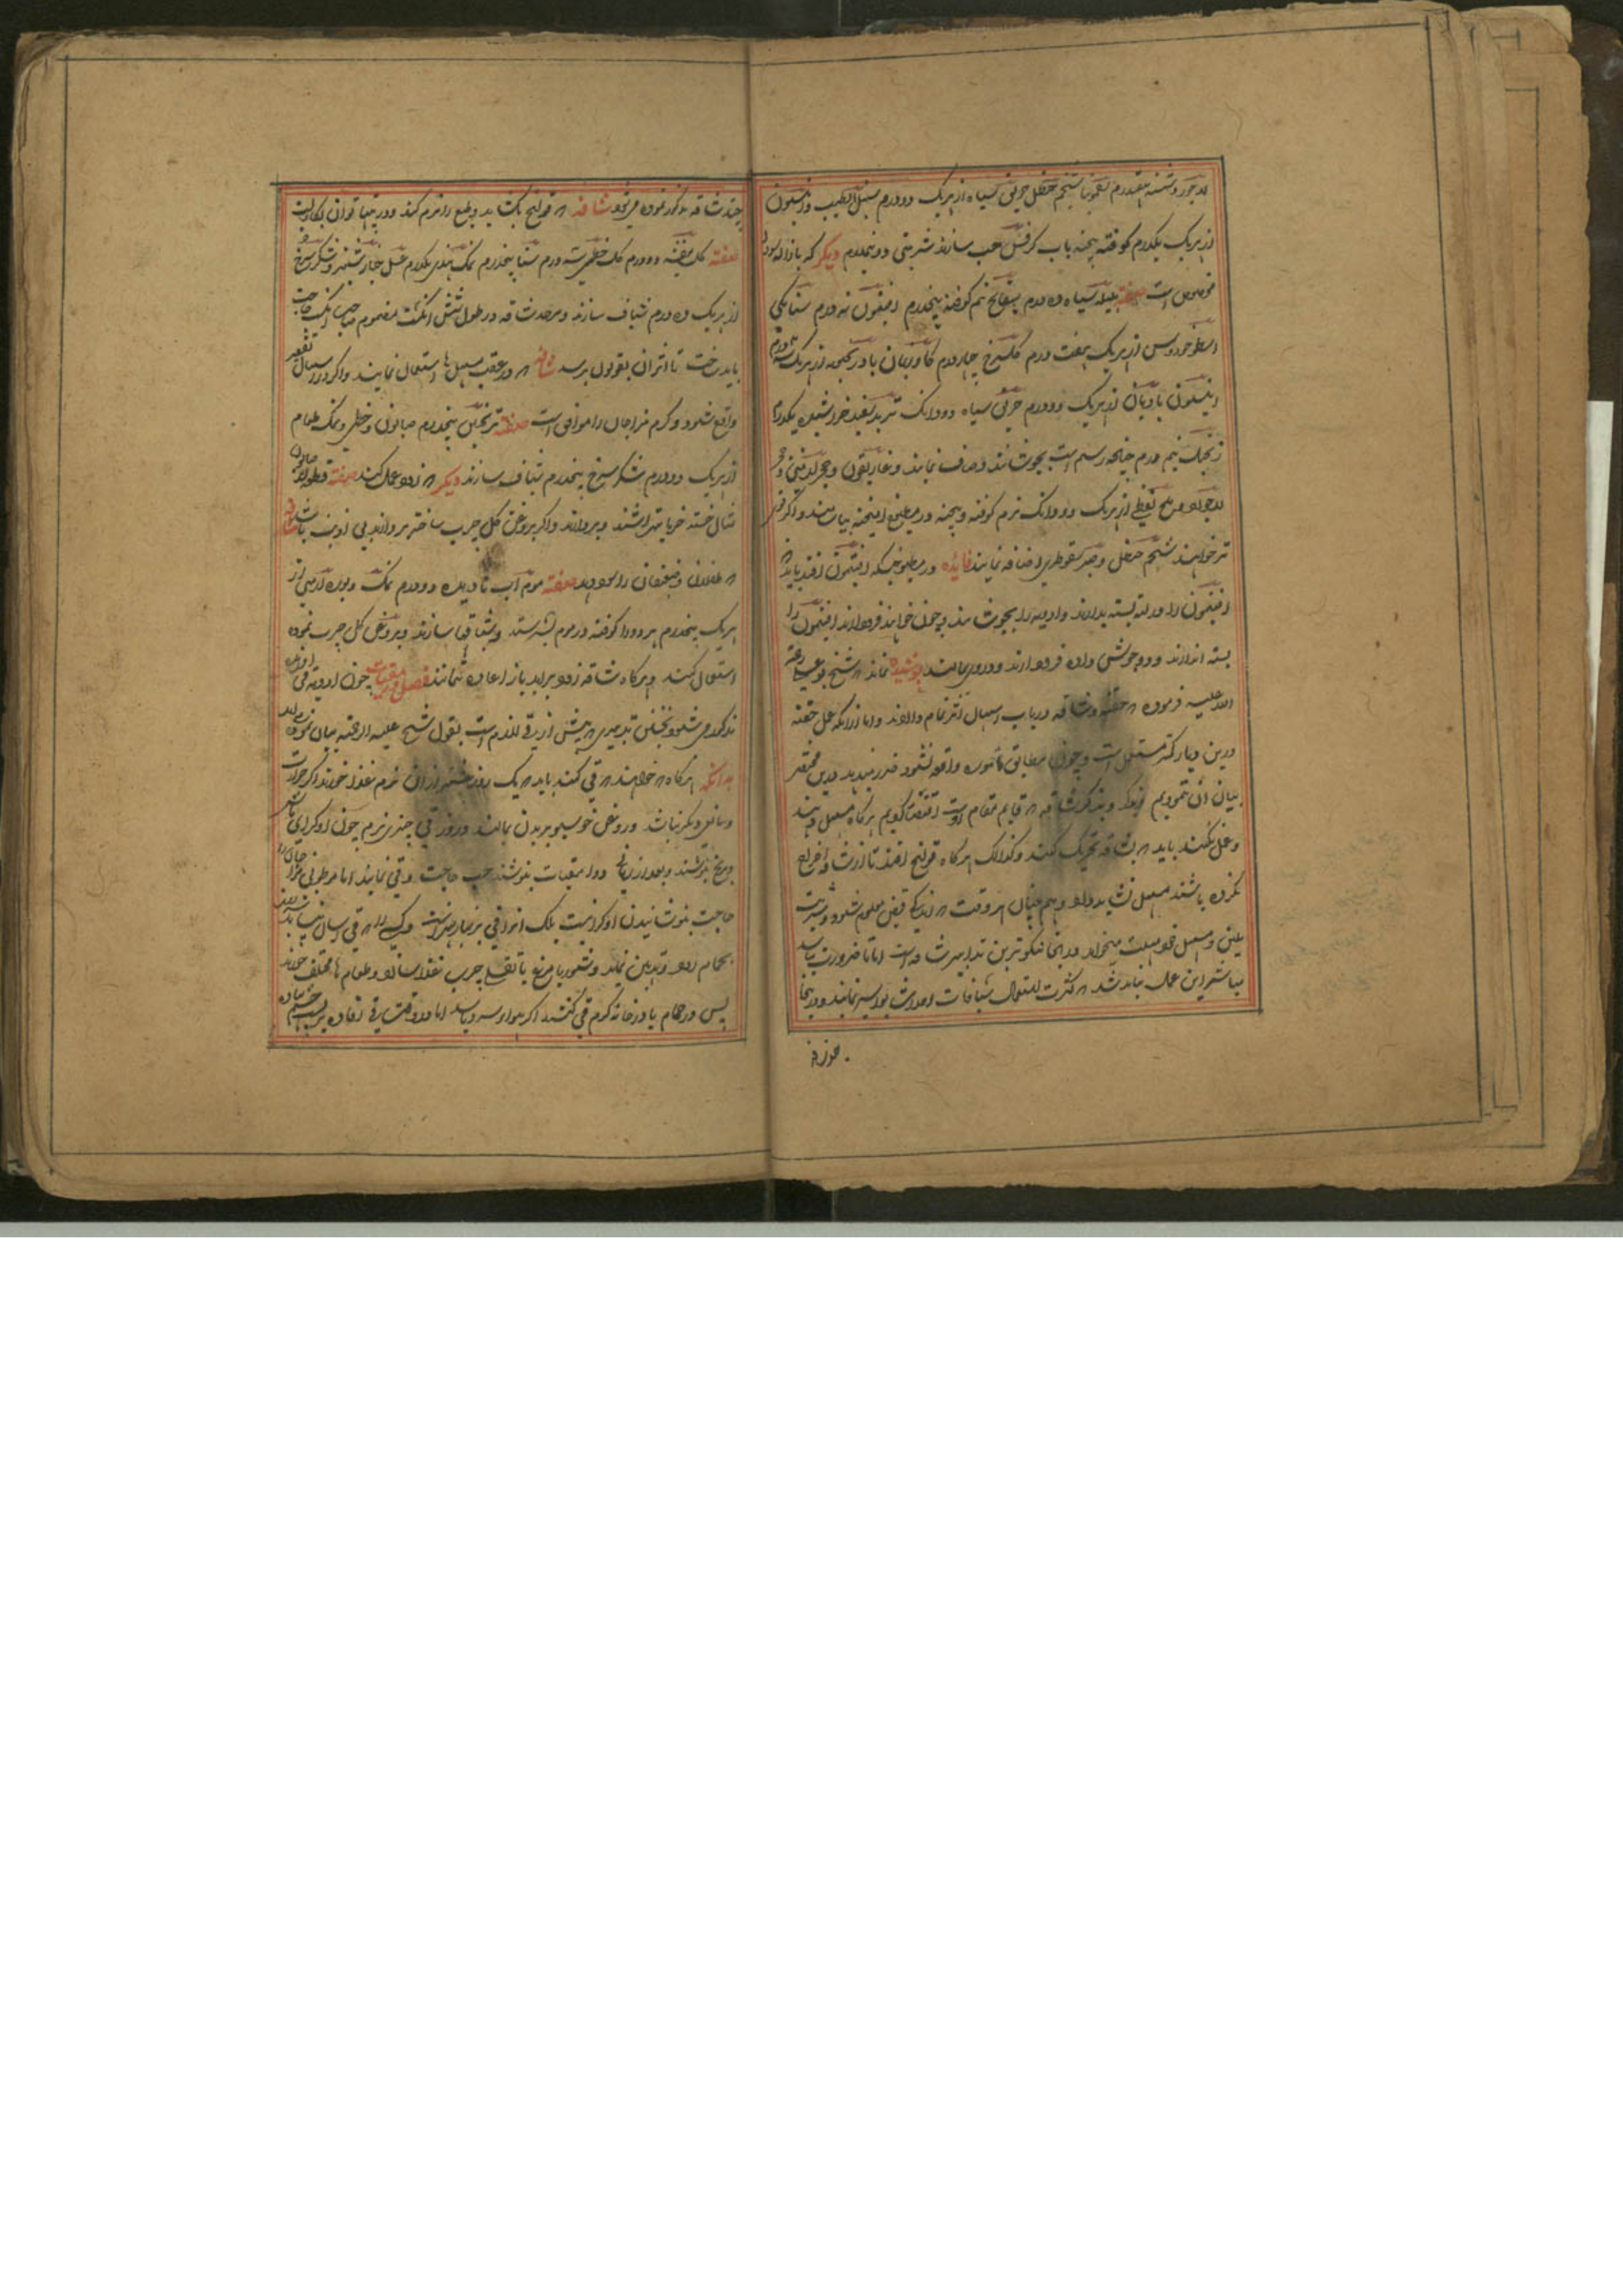 لاجورد شسته نیمدرم سقمونیا شحم حنظل خربق سیاه از هریک دو درم سنبل الطیب و انیسون
از هریک یکدرم کوفته بیخته باب کرفس حب سازند شربتی دو نیمدرم دیگر که بازاله سودا
مخصوص است صفته هلیله سیاه ده درم بسفایج نیم کوفته پنجدرم افتیمون نه درم سنا مکی
اسطوخودوس از هریک هفت درم گلسرخ چهار درم گاوزبان بادرنجبویه از هریک سه درم
انیسون بادیان از هریک دو درم خربق سیاه دو دانگ تربد سفید خراشیده یکدرم
زنجبیل نیم درم چنانچه رسم است بجوشانند و صاف نمایند و غاریقون و حجر ارمنی و حجر
لاجورد و ملح نفطی از هریک دو دانگ نرم کوفته و بیخته در مطبوخ امیخته بیاشامند و اگر قوی
تر خواهند شحم حنظل و صبر سقوطری اضافه نمایند فایده در مطبوخیکه افتیمون افتد باید که
افتیمون را در لته بسته بدارند و ادویه را بجوشانند و چون خواهند فرود ارند افتیمون را
بسته اندازند و دو جوش داده فرود ارند و درو بمالند پوشیده نماند که شیخ بو علی رحمة
الله علیه فرموده که حقنه و شافه در باب اسهال اثر تمام دارند و اما ازانکه عمل حقنه
درین دیار کمتر مستعمل است و چون مطابق مامور واقع نشود ضرر میدهد درین مختصر
بیان آن ننمودیم و بذکر شافه که قایم مقام اوست اقتصار کردیم هرگاه مسهل دهند
و عمل نکند باید که بشافه تحریک کنند و کذالک هرگاه قولنج افتد تا از شافه اخراج
نکرده باشند مسهل نشاید داد و هم چنان هر وقت که اندکی قبض معلوم شود و شربت
ملین و مسهل خود مهلت میخواهد در انجا نیکوترین تدابیر شافه است اما تا ضرورت نباشد
مباشر این عمل نباید شد که کثرت استعمال شیافات احداث بواسیر نمایند و درینجا
چند شافه مذکور نموده می شود شافه که قولنج بکشاید و طبع را نرم کند و در تبها توان بکار بست
صفته گل بنفشه دو درم گل خطمی سه درم سنا پنجدرم نمک هندی یکدرم عسل خیارشنبر و شکر سرخ
از هریک ده درم شیاف سازند و مر حد شافه در طول شش انگشت مضموم صاحب انگشت حاجت
باید ساخت تا اثر ان بقولون برسد شافه که در عقب مسهل ها استعمال نمایند و اگر در اسهال تقصیر
واقع شود و گرم مزاجان را موافق است صفته ترنجبین پنجدرم صابون و خطمی و نمک طعام
از هریک دو درم شکر سرخ پنجدرم شیاف سازند دیگر که زود عمل کند صفته قطعه از صابون
مثال خسته خرما بتراشند و بردارند و اگر بروغن گل چرب ساخته بردارند بی اذیت باشد شافه
که طفلان و ضعیفان را سود دهد صفته موم آب نادیده دو درم نمک و بوره ارمنی از
هریک پنجدرم هر دو را کوفته در موم بسرشند و شیافها سازند و بروغن گل چرب نموده
استعمال کنند و هرگاه شافه زود براید باز اعاده نمایند فصل در مقیات چون ادویه قی
مذکور می شود نخستین تدبیری که پیش از قی لازم است بقول شیخ علیه الرحمه بیان نموده اید
بدانکه هرگاه که خواهند که قی کنند باید که یک روز پیش از ان نرم غذا خورند اگر حرارت
و مانع دیگر نباشد و روغن خوشبو بر بدن بمالند و روز قی چیزی نرم چون شوربای ماش
و برنج بنوشند و بعد از زمانی دوا مقیات بنوشند حسب حاجت و قی نمایند اما مرطوبی مزاجان را
حاجت بنوشانیدن شوربا نیست بلکه انرا قی بر نهار بهتر است و کسی را که قی اسان نیاید باید
بحمام رود و تدهین نماید و شوربا مرغ با نقل چرب غذا سازد و طعام ها مختلف خورند
پس در حمام یا در خانه گرم قی کنند اگر هوا سرد باشد اما در وقت قی رفاده بر چشم نهاده